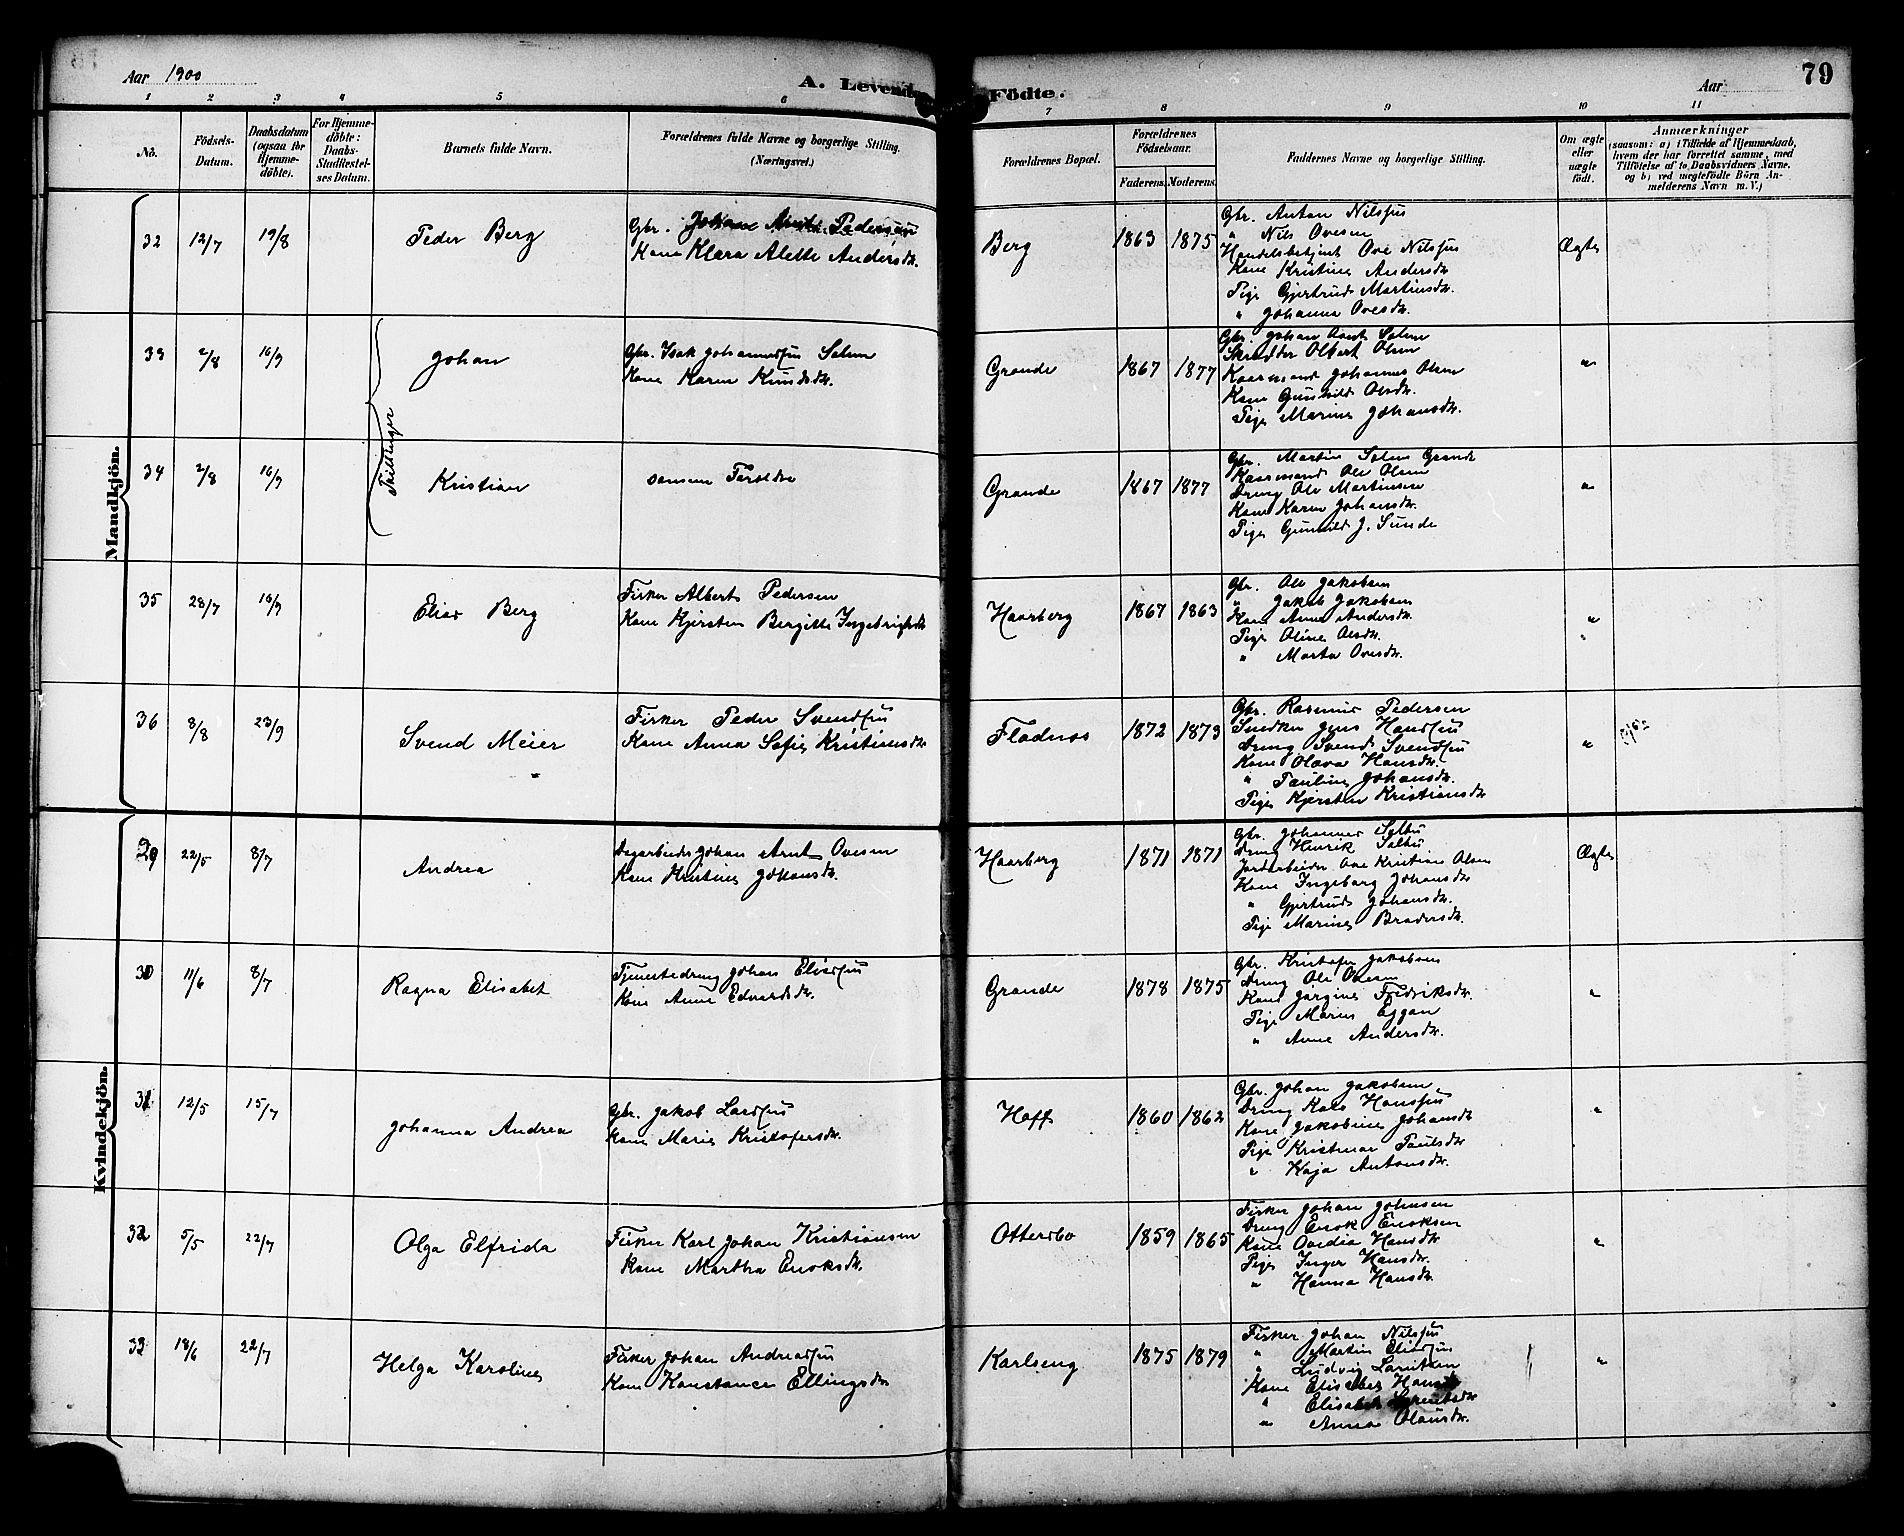 Aar 1900
A. Levende Födte.
Aar
79
1 2 3 4 5 6 7 8 9 10 11
No.
Födsels-Datum.
Daabsdatum (ogsaa for Hjemme-döbte).
For Hjemme-döbte: Daabs-Stadfestel-ses Datum.
Barnets fulde Navn.
Forældrenes fulde Navne og borgerlige Stilling. (Næringsvei.)
Forældrenes Bopæl.
Forældrenes Födselsaar.
Faderens. Moderens.
Faddernes Navne og borgerlige Stilling.
Om ægte eller uægte födt.
Anmærkninger
(saasom: a) i Tilfælde af Hjemmedaab, hvem der har forrettet samme, med Tilföielse af to Daabsvidners Navne, og b) ved uægtefödte Börn An-melderens Navn m. V.)
Mandkjön.
32 12/7 19/8 Peder Berg
Gbr. Johan Arnt Pedersen
Kone Klara Alette Andersdr.
Berg 1863 1875
Gbr. Anton Nilssen
" Nils Ovesen
Handelsbetjent Ove Nilssen
Kone Kristine Andersdr.
Pige Gjertrud Martinsdr.
" Johanna Ovesdr.
Ægte
33 2/8 16/9 Johan
Tvillinger
Gbr. Isak Johannessen Solem
Kone Karen Knudsdr.
Grande 1867 1877
Gbr. Johan Arnt Solem
Skrædder Albert Olsen
Kaarmand Johannes Olsen
Kone Gunhild Olsdr.
Pige Marine Johansdr.
"
34 2/8 16/9 Kristian
samme Foreldre
Grande 1867 1877
Gbr. Martin Solem Grande
Kaarmand Ole Olsen
Dreng Ole Martinsen
Kone Karen Johansdr.
Pige Gunhild J. Sunde
"
35 28/7 16/9 Elias Berg
Fisker Albert Pedersen
Kone Kjersten Bergitte Ingebrigtsdr.
Haarberg 1867 1863
Gbr. Ole Jakobsen
" Jakob Jakobsen
Kone Anna Andersdr.
Pige Oline Olsdr.
" Marta Ovesdr.
"
36 8/8 23/9 Svend Meier
Fisker Peder Svendsen
Kone Anna Sofie Kristiansdr.
Fladnes 1872 1873
Gbr. Rasmus Pedersen
Snedker Jens Hansen
Dreng Svend Svendsen
Kone Olava Hansdr.
" Pauline Johansdr.
Pige Kjersten Kristiansdr
"
Kvindekjön.
29 22/5 8/7 Andrea
Dagarbeider Johan Arnt Ovesen
Kone Kristine Johansdr.
Haarberg 1871 1871
Gbr. Johannes Selbu
Dreng Henrik Selbu
Jordarbeider Ove Kristian Olsen
Kone Ingeborg Johansdr
" Gjertrud Johansdr.
Pige Marine Bradersdr.
Ægte
30 11/6 8/7 Ragna Elisabet
Tjenestedreng Johan Eliassen
Kone Anne Edvardsdr.
Grande 1878 1875
Gbr. Kristofer Jakobsen
Dreng Ole Ovesen
Kone Jørgine Fredriksdr.
Pige Maren Eggan
" Anne Andersdr.
"
31 12/5 15/7 Johanna Andrea
Gbr. Jakob Larssen
Kone Marie Kristofersdr.
Hoff 1860 1862
Gbr. Johan Jakobsen
Dreng Kals Hanssen
Kone Jakobine Johansdr
Pige Kristmar Paulsdr
" Kaja Antonsdr.
"
32 5/5 22/7 Olga Elfrida
Fisker Karl Johan Kristiansen
Kone Martha Enoksdr.
Ottersbo 1859 1865
Fisker Johan Johnsen
Dreng Enok Enoksen
Kone Ovedia Hansdr
Pige Inger Hansdr.
" Hanna Hansdr.
"
33 18/6 22/7 Helga Karoline
Fisker Johan Andreassen
Kone Konstance Ellingsdr
Karlseng 1875 1879
Fisker Johan Nilssen
" Martin Eliassen
" Ludvig Lauritsen
Kone Elisabet Hansdr
" Elisabet
" Anna Olausdr.
"